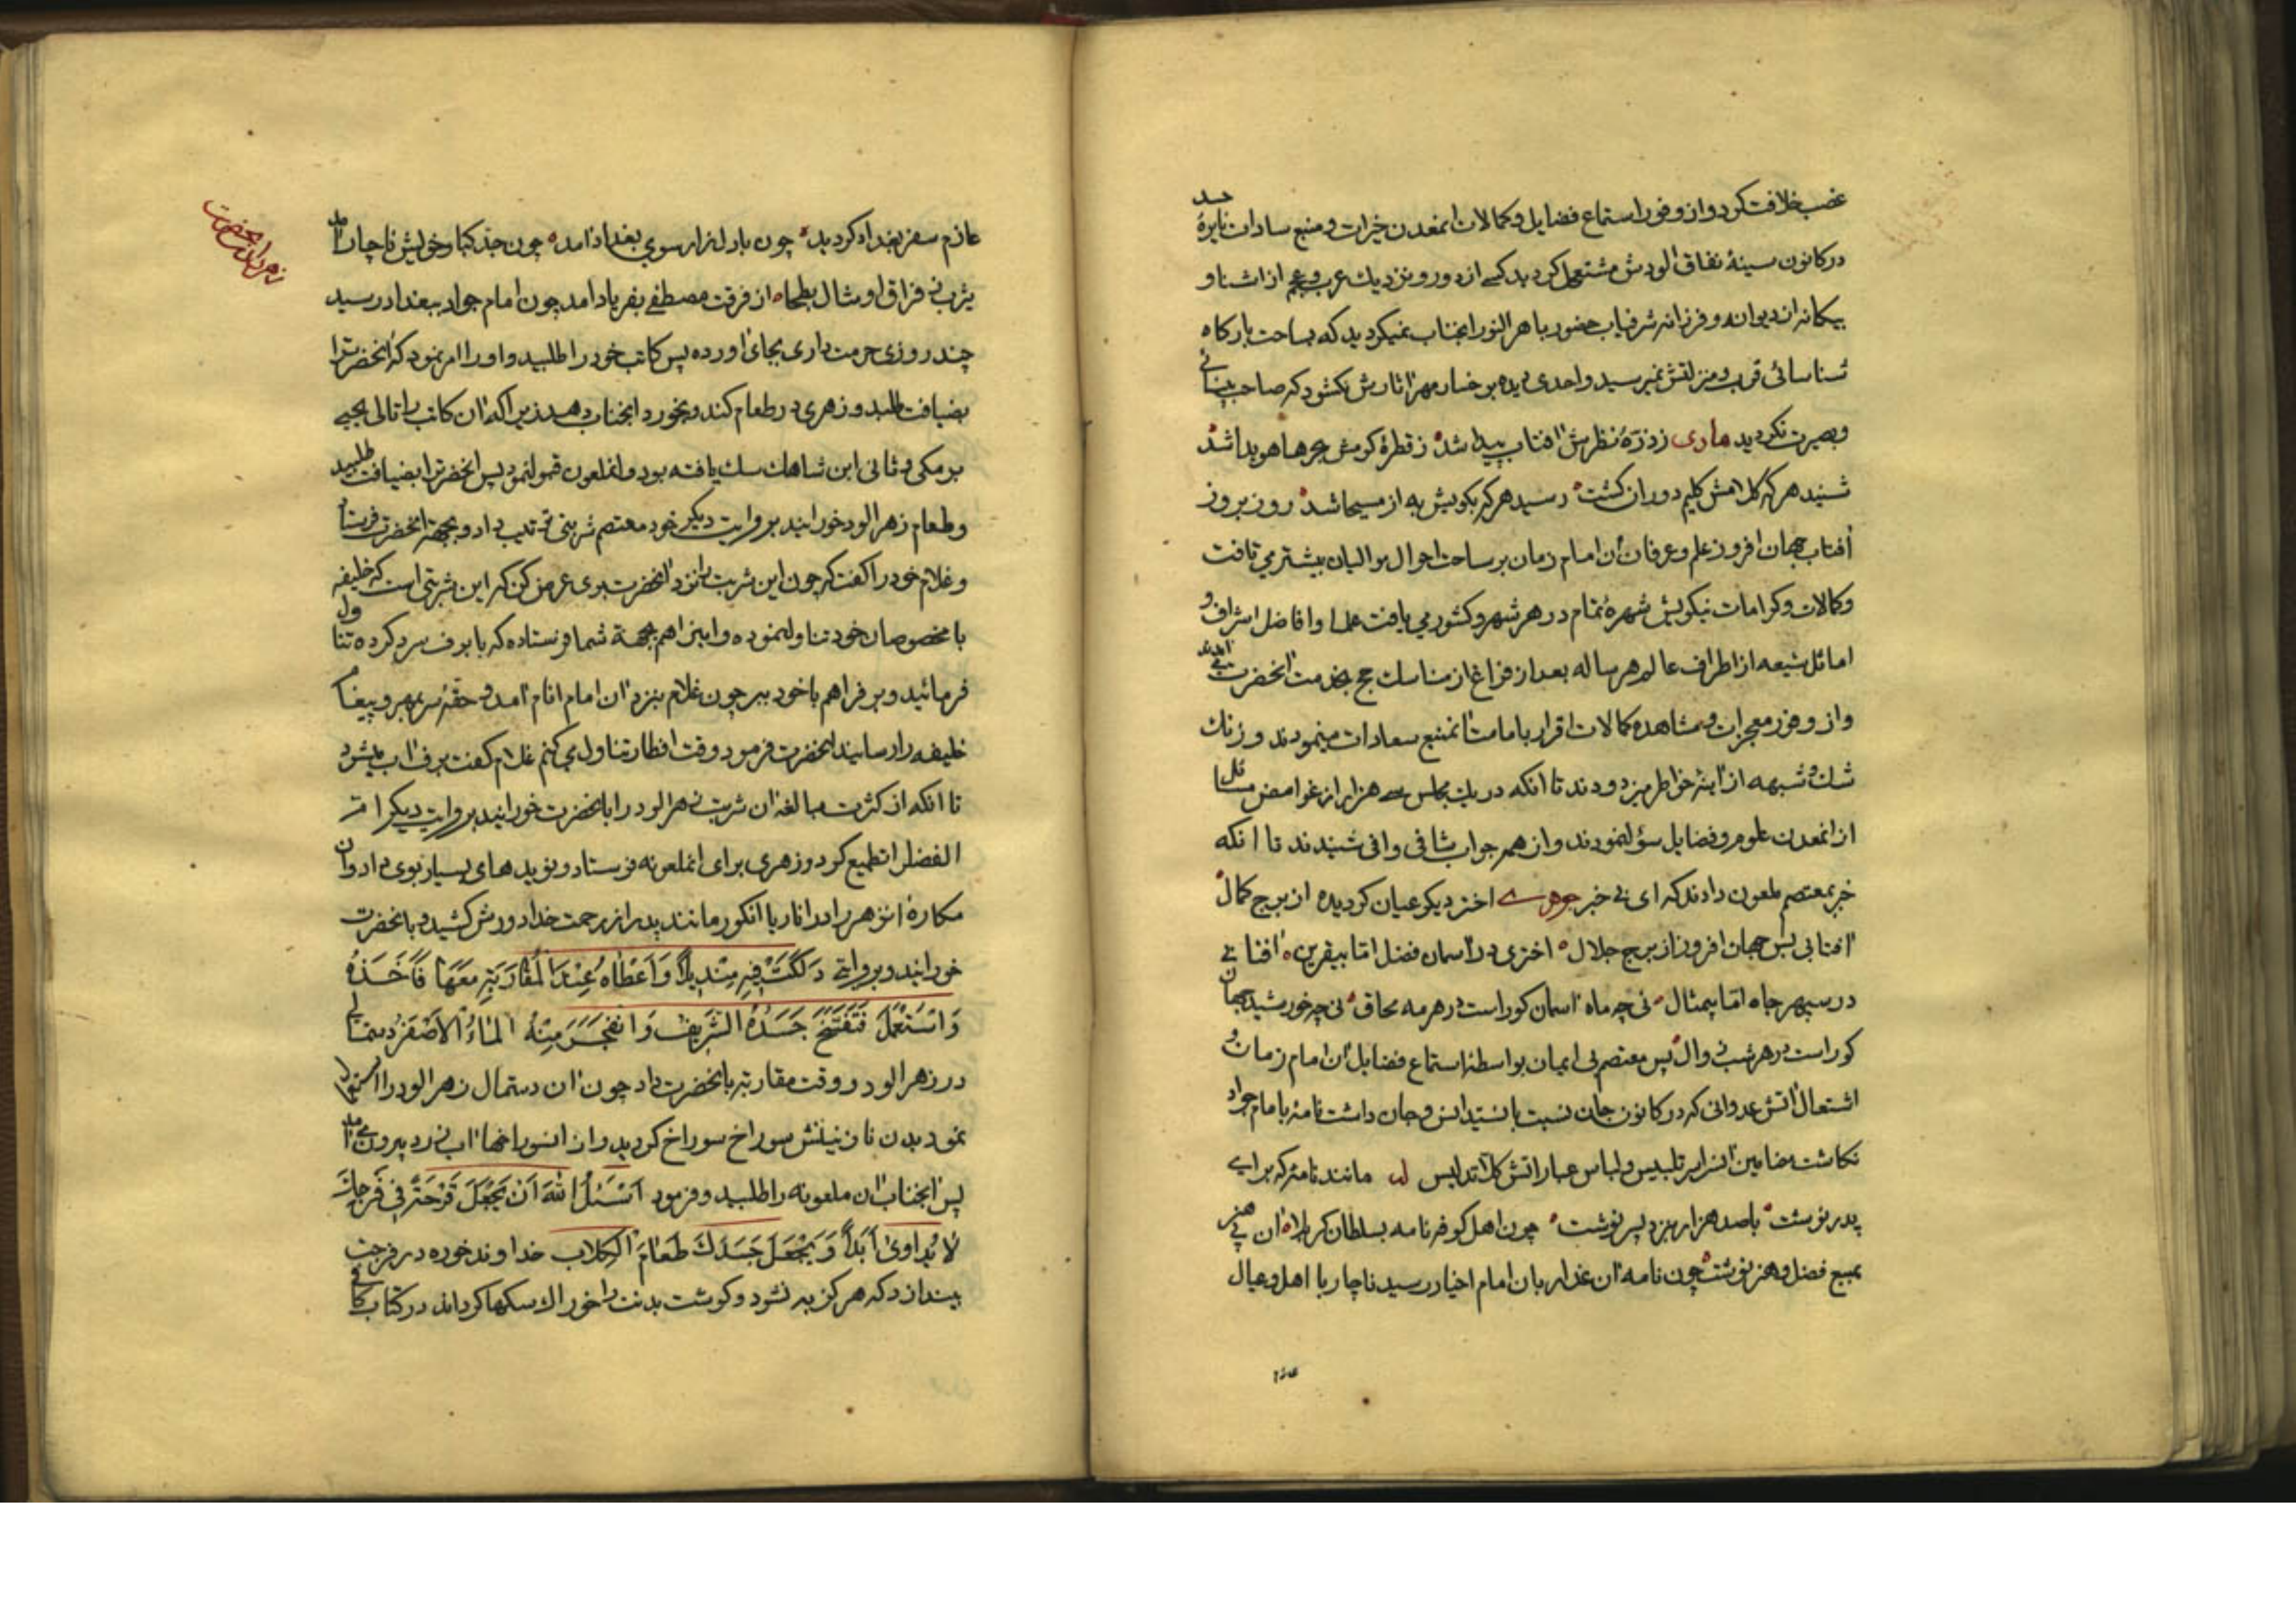 غصب خلافت کرد و از وفور استماع فضایل و کمالات انمعدن خیرات و منبع سادات نایرهٔ حسد
در کانون سینهٔ نفاق الودش مشتعل کردید کسے از دور و نزدیك عرب و عجم از اشنا و
بیکانه از دیوانه و فرزانه شرفیاب حضور باهر النور انجناب نمیکردید که بساحت بارکاه
شناسائی قرب و منزلتش نمیرسید و احدی دیده بر خسار مهر اثارش نکشود که صاحب بینائے
و بصیرت نکردید مادری ز ذرّهٔ نظرش افتاب پیدا شد ز قطرهٔ کرمش بحرها هویدا شد
شنید هر که کلامش کلیم دوران کشت رسید هر که بکویش به از مسیحا شد روز بروز
افتاب جهان افروز علم و عرفان ان امام زمان بر ساحت احوال موالیان بیشتر می تافت
و کمالات و کرامات نیکویش شهرهٔ تمام در هر شهر و کشور می یافت علما و افاضل اشراف و
اماثل شیعه از اطراف عالم هر ساله بعد از فراغ از مناسك حج بخدمت انحضرت می امدند
و از وفور معجزات و مشاهده کمالات اقرار بامامت انمنبع سعادات مینمودند و زنك
شك و شبهه از اینهٔ خواطر میزدودند تا انکه در یك مجلس سے هزار از غوامض مسائل
از انمعدن علوم و فضایل سؤال نمودند و از همه جواب شافی وافی شنیدند تا انکه
خبر بمعتصم ملعون دادند که ای بی خبر جوهرے اختر دیکر عیان کردیده از برج کمال
افتابی بس جهان افروز از برج جلال اختری در اسمان فضل امّا بیقرین افتابے
در سپهر جاه امّا بیمثال نی چه ماه اسمان کوراست در هر مه محاق نی چه خورشید جهان
کوراست در هر شب زوال پس معتصم بی ایمان بواسطهٔ استماع فضایل ان امام زمان و
اشتعال اتش عدوانی که در کانون جان نسبت بانسیّد انس و جان داشت نامهٔ بامام جواد
نکاشت مضامین انرا بر تلبیس و لباس عباراتش کلاّ تدلیس مانند نامهٔ که برای
پدر نوشت باصد هزار بیزد پسر نوشت چون اهل کوفه نامه بسلطان کربلا ان بی هنر
بمنبع فضل و هنر نوشت چون نامه ان غدار بان امام اخیار رسید ناچار با اهل و عیال
عازم سفر بغداد کردید چون بادل نزار سوی بغداد امد چون جدّ کبار خویش ناچار امد
یثرب ز فراق او مثال بطحا از فرقت مصطفے بفریاد امد چون امام جواد ببغداد رسید
چند روزی حرمت داری بجای اورده پس کاتب خود را طلبید و او را امر نمود که انحضرترا
بضیافت طلبد و زهری در طعام کند و بخورد انجناب دهد زیرا که ان کاتب با تالی یحیے
برمکی و ثانی ابن شاهك سلك یافته بود و انملعون قبول نمود پس انحضرترا بضیافت طلبید
و طعام زهر الود خورانید بروایت دیکر خود معتصم شربتی ترتیب داد و بجهة انحضرت فرستاد
و غلام خود را کفت که چون این شربت را نزد انحضرت بری عرض کن که این شربتی است که خلیفه
با مخصوصان خود تناول نموده و اینرا هم بجهة شما فرستاده که با برف سرد کرده تناول
فرمائید و برف را هم با خود ببر چون غلام بنزد ان امام انام امد و حقهٔ سر بمهر و پیغام
خلیفه را رسانید انحضرت فرمود وقت افطار تناول می کنم غلام کفت برف اب میشود
تا انکه از کثرت مبالغه ان شربت زهر الود را بانحضرت خورانید بروایت دیکر امّ
الفضل را تطمیع کرد و زهری برای انملعونه فرستاد و نوید های بسیار بوی داد و ان
مکاره انزهر را در انار یا انکور مانند پدر از رحمت خدا دورش کشید و بانحضرت
خورانید و بروایتے دَلَكَتْ فِيهِ مِنْدِيلاً وَاَعْطَاهُ عِنْدَ الْمُقَارَبَةِ مَعَهَا فَاَخَذَهُ
وَاسْتَعْمَلَ فَتَفَتَّخَ جَسَدُهُ الشَّرِيفُ وَانْفَجَرَ مِنْهُ الْمَاءُ الْاَصْفَرُ دستمالی
در زهر الود در وقت مقاربة بانحضرت داد چون ان دستمال زهر الود را استعمال
نمود بدن نازنینش سوراخ سوراخ کردید و از انسوراخها اب زرد بیرون می امد
پس انجناب ان ملعونه را طلبید و فرمود اَسْئَلُ اللّٰهَ اَنْ يَجْعَلَ قَرْحَةً فِي فَرْجِكَ
لاَ يُدَاوىٰ اَبَداً وَيَجْعَلَ جَسَدَكَ طَعَامَ الْكِلاَبِ خداوند خوره در فرجت
بیندازد که هرکز به نشود و کوشت بدنت را خوراك سکها کرداند در کتاب کافی
زهر دادن انحضرت